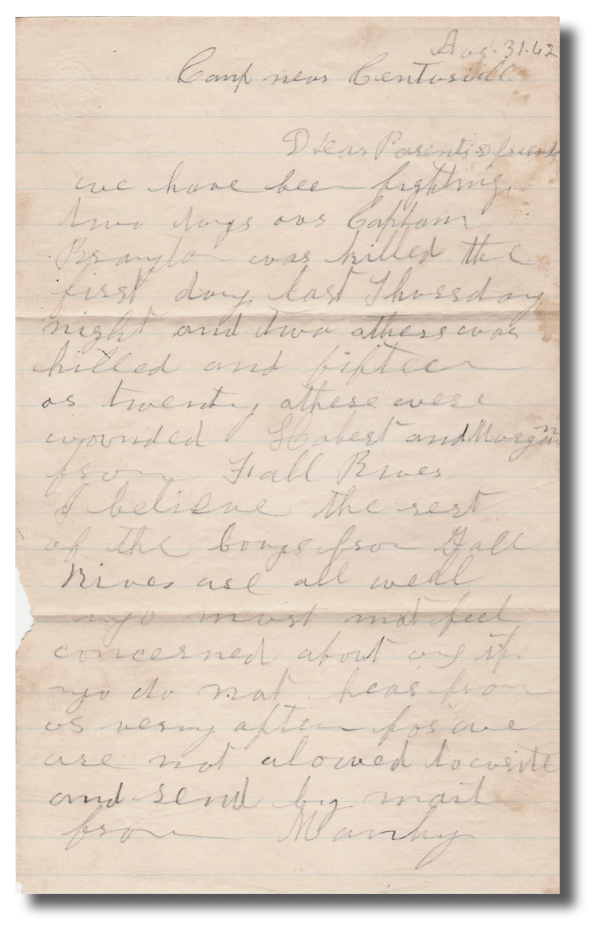 Aug 31. 62
Camp near Centervill
Dear Parents & friends
we have been fighting
two days our Captain
Brayton was killed the
first day last Thursday
night and two others was
killed and fifteen
or twenty others were
wounded Hobert and Morgan
from Fall River
I believe the rest
of the boys from Fall
River are all well
you must not feel
concerned about me if
you do not hear from
us verry often for we
are not alowed to write
and send by mail
from Manly